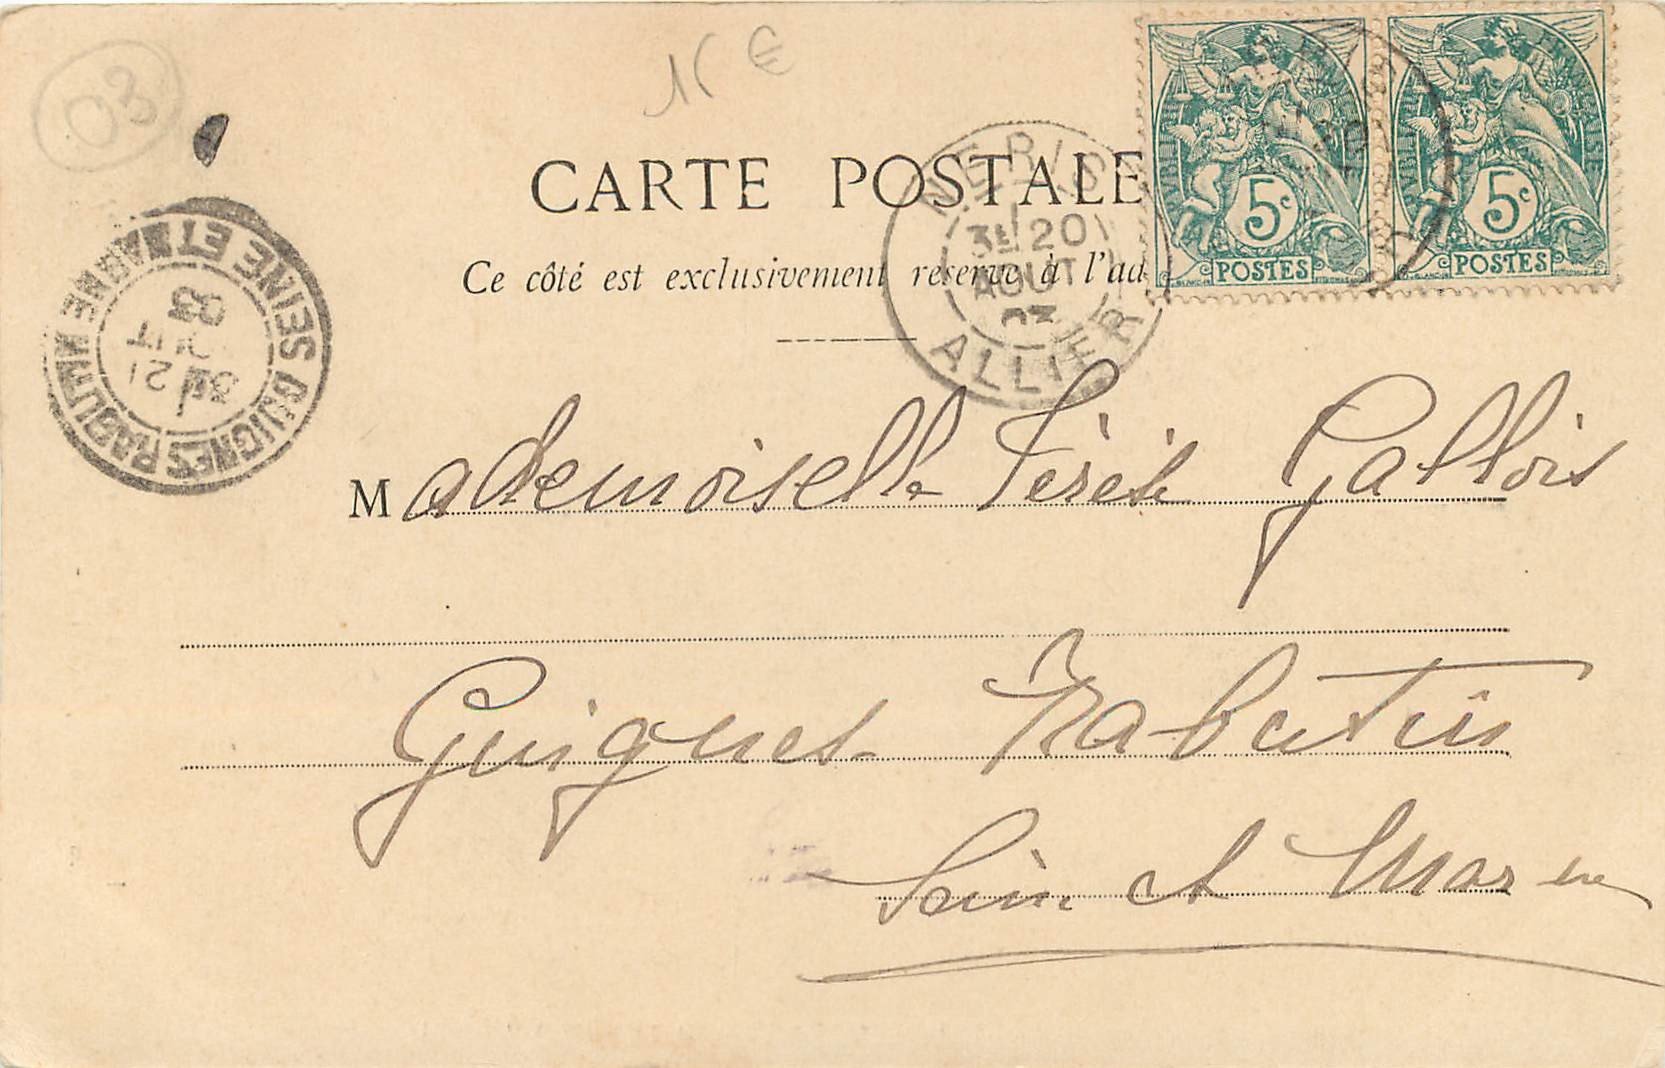 03
15 €
CARTE POSTALE
Ce côté est exclusivement réservé à l'ad
NERIS
3E 20
AOUT
03
ALLIER
REPUBLIQUE FRANCAISE
5c
POSTES
REPUBLIQUE FRANCAISE
5c
POSTES
GUIGNES RABUTIN SEINE ET MARNE
3E 21
AOUT
03
Mademoiselle Gallois
Guignes Rabutin
Seine et Marne